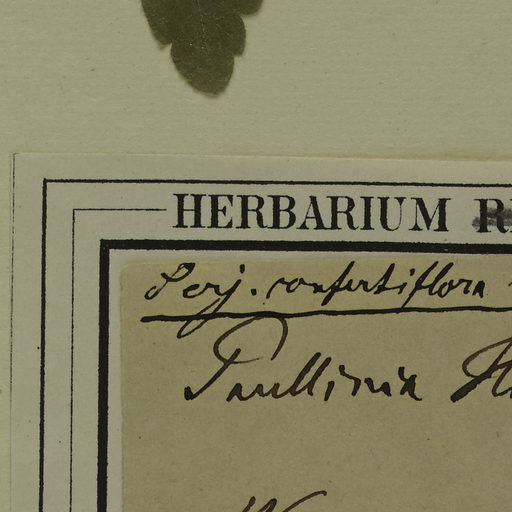 HERBARIUM
Serj. confertiflora
Paullinia